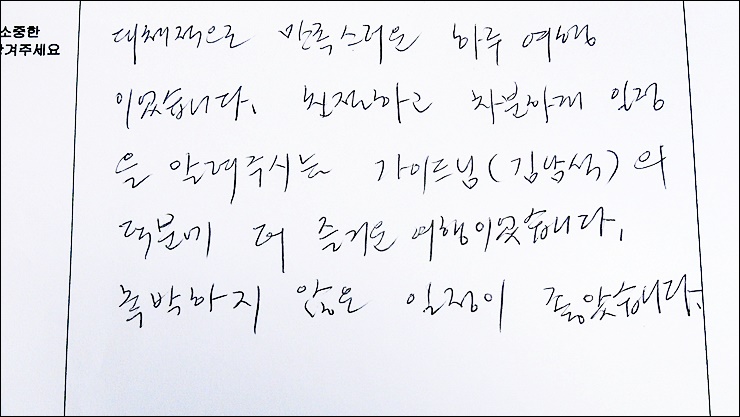 소중한
남겨주세요
대체적으로 만족스러운 하루 여행
이었습니다. 친절하고 차분하게 일정
을 알려주시는 가이드님(김남석)의
덕분에 더 즐거운 여행이었습니다.
촉박하지 않은 일정이 좋았습니다.